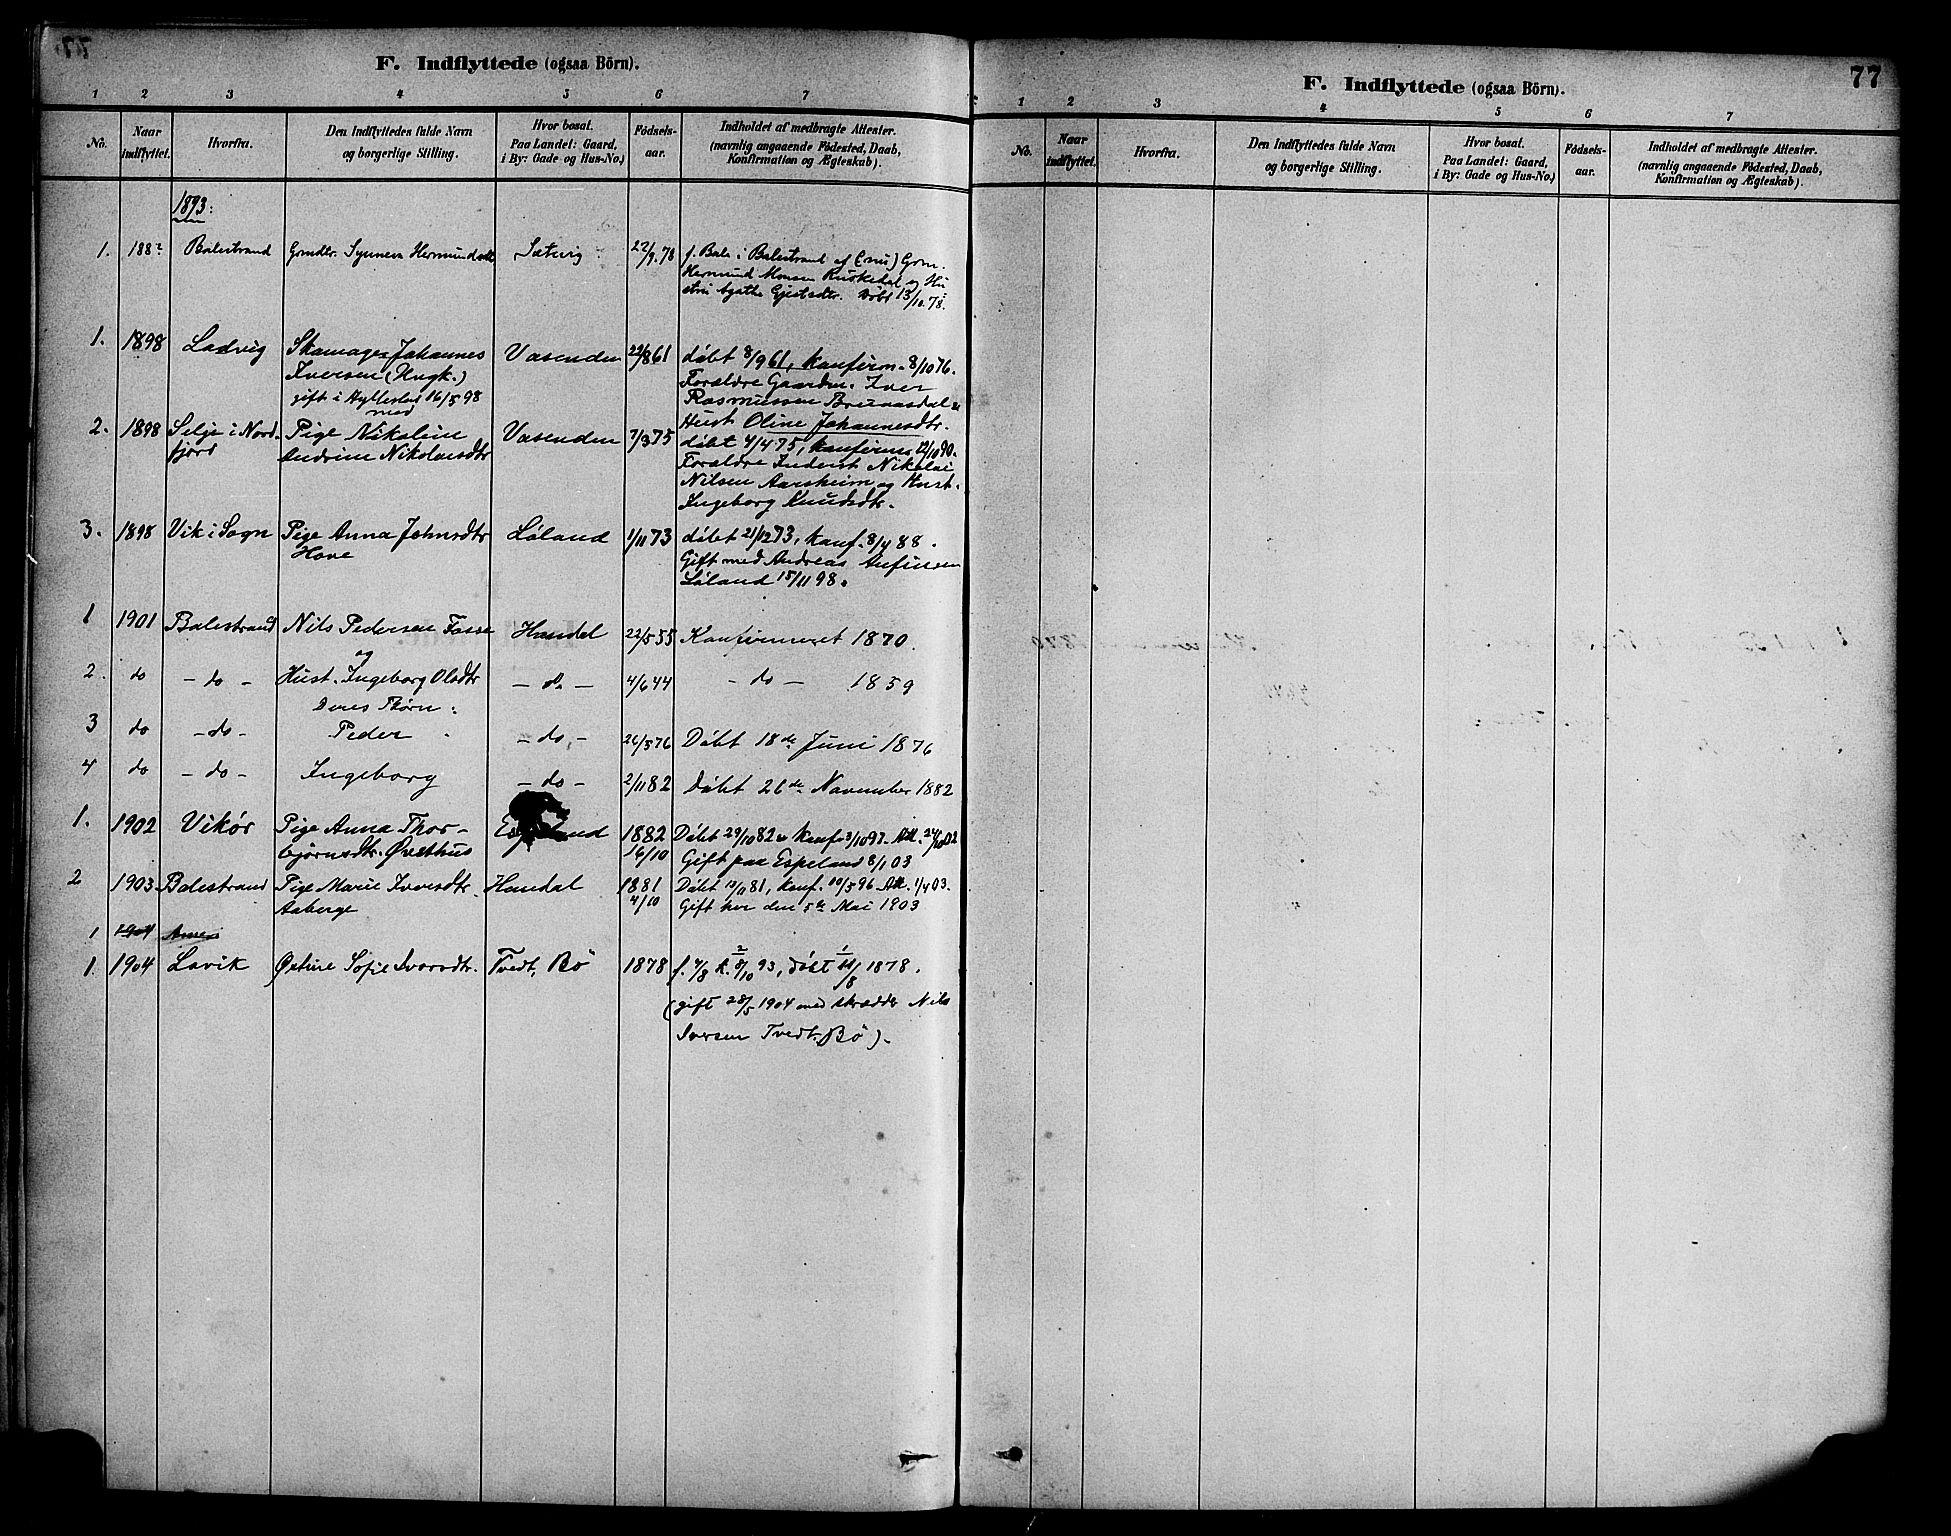 F. Indflyttede (ogsaa Börn).
1 2 3 4 5 6 7
No. Naar indflyttet. Hvorfra. Den Indflyttedes fulde Navn og borgerlige Stilling. Hvor bosat. Paa Landet: Gaard, i By: Gade og Hus-No.) Fødselsaar. Indholdet af medbragte Attester. (navnlig angaaende Födested, Daab, Konfirmation og Ægteskab).
1893:
1. 188? Balestrand Grmdtr. Synneva Hermundsdtr Sætvig 22/9.78 f. Bale i Balestrand af (nu) Grm.
Hermund Monsen Ruskedal og Hu
stru Agathe Gjertsdtr. Døbt 13/10.78.
1. 1898 Ladvig Skomager Johannes Vasenden 22/861 døbt 8/961, Konfirm. 8/1076.
Iversen (Ungk.) Forældre Gaardm. Iver
gift i Hyllestad 16/598 Rasmussen
med Hust Oline Johannesdtr.
2. 1898 Selje i Nord- Pige Nikoline Vasenden 7/375 døbt 4/475, konfirm. 12/1090.
fjord Andrine Nikolaisdtr Forældre Inderst Nikolai
Nilsen Aarsheim og Hust.
Ingeborg Knudsdtr.
3. 1898 Vik i Sogn Pige Anna Johnsdtr Løland 1/1173 døbt 21/1273, Konf. 8/488.
Hove Gift med Andreas Anfinsen
Løland 15/1198.
1 1901 Balestrand Nils Pedersen Fosse Handal 22/555 Konfirmeret 1870.
og
2. do - do - Hust. Ingeborg Olsdtr - do - 4/644 - do - 1859
Deres Børn:
3 do - do - Peder - do - 26/576 Døbt 18de Juni 1876
4 do - do - Ingeborg - do - 2/1182 Døbt 26de November 1882
1. 1902 Vikør Pige Anna Thor- 1882 Døbt 29/1082 Konf. 3/1097. Att. 24/1002
bjørnsdtr. Øvsthus 16/10 Gift paa Espeland 8/103
2 1903 Balestrand Pige Marie Iversdtr Handal 1881 Døbt 13/1181, Konf. 10/596 Att. 1/403.
Aaberge 4/10 Gift her den 5te Mai 1903
1 1904
1. 1904 Lavik Østine Sofie Ivarsdtr. Tvedt, Bø 1878 f. 4/8 k. 8/10 93, døbt 11/8 1878.
(gift 28/5 1904 med skrædder Nils
Iversen Tvedt, Bø).
77
F. Indflyttede (ogsaa Börn).
1 2 3 4 5 6 7
No. Naar indflyttet. Hvorfra. Den Indflyttedes fulde Navn og borgerlige Stilling. Hvor bosat. Paa Landet: Gaard, i By: Gade og Hus-No.) Fødselsaar. Indholdet af medbragte Attester. (navnlig angaaende Födested, Daab, Konfirmation og Ægteskab).